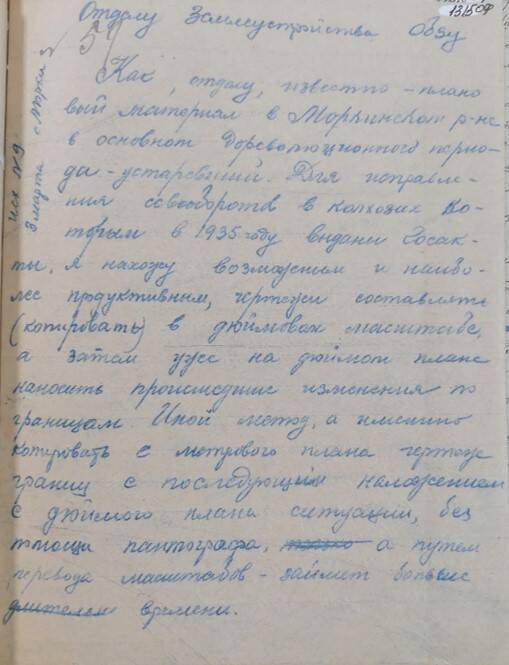 13/509
Отделу Землеустройства ОбЗУ
59
исх № 9
3 марта с Морки
Как, отделу, известно – плано
вый материал в Моркинском р-не
в основном дореволюционного перио-
да – устаревший. Для исправле-
ния севооборотов в колхозах ко-
торым в 1935 году выданы Госак-
ты, я нахожу возможным и наибо-
лее продуктивным, чертежи составлять
(копировать) в дюймовых масштабе,
а затем уже на дюймом плане
наносить происшедшие изменения по
границам. Иной метод, а именно
копировать с метрового плана чертеж
границ с последующим наложением
с дюймого плана ситуации, без
помощи пантографа, только а путем
перевода масштабов – займет больше
длительн времени.